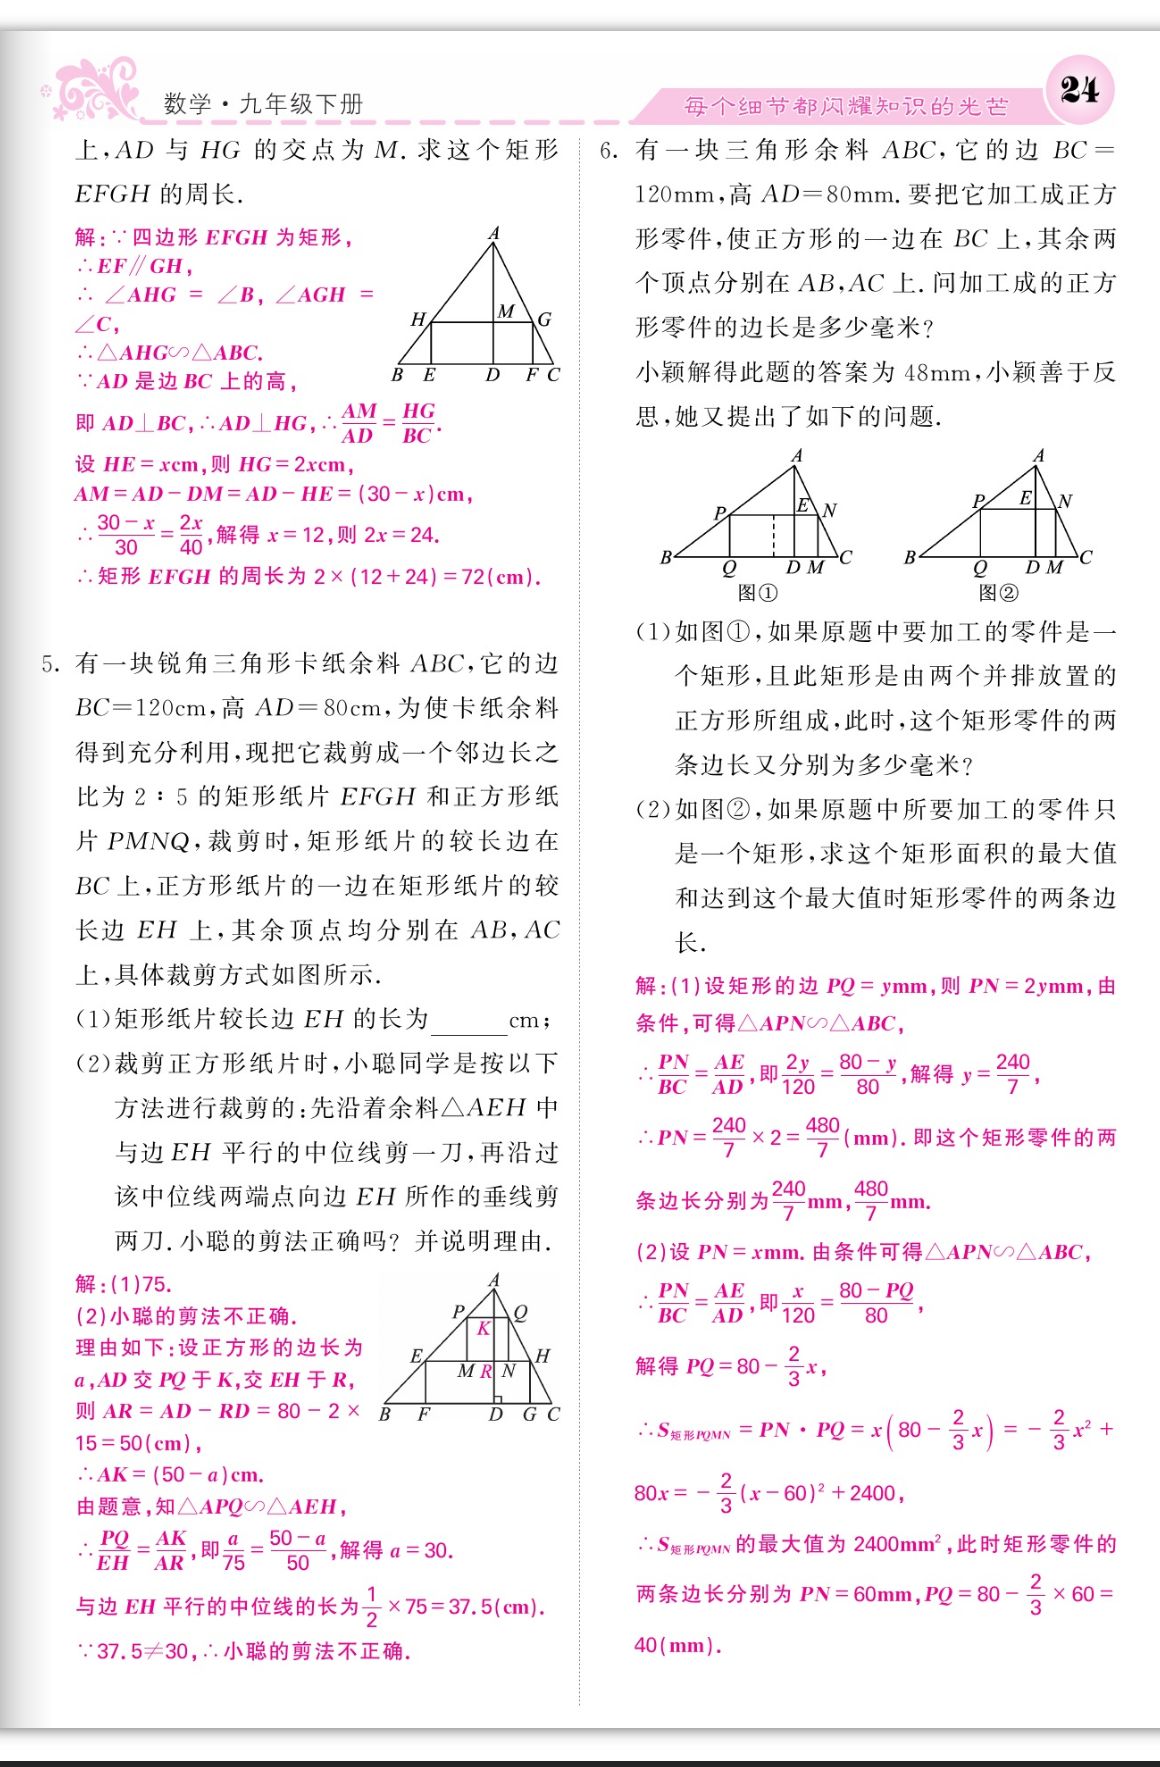 数学·九年级下册
每个细节都闪耀知识的光芒
24
上,AD 与 HG 的交点为 M. 求这个矩形
EFGH 的周长.
解:∵四边形 EFGH 为矩形,
∴EF∥GH,
∴∠AHG = ∠B, ∠AGH =
∠C,
∴△AHG∽△ABC.
∵AD 是边 BC 上的高,
即 AD⊥BC,∴AD⊥HG,∴AM/AD=HG/BC.
设 HE=xcm,则 HG=2xcm,
AM=AD-DM=AD-HE=(30-x)cm,
∴(30-x)/30=2x/40,解得 x=12,则 2x=24.
∴矩形 EFGH 的周长为 2×(12+24)=72(cm).
A
H M G
B E D F C
5. 有一块锐角三角形卡纸余料 ABC,它的边
BC=120cm,高 AD=80cm,为使卡纸余料
得到充分利用,现把它裁剪成一个邻边长之
比为 2∶5 的矩形纸片 EFGH 和正方形纸
片 PMNQ,裁剪时,矩形纸片的较长边在
BC 上,正方形纸片的一边在矩形纸片的较
长边 EH 上,其余顶点均分别在 AB,AC
上,具体裁剪方式如图所示.
(1)矩形纸片较长边 EH 的长为______cm;
(2)裁剪正方形纸片时,小聪同学是按以下
方法进行裁剪的:先沿着余料△AEH 中
与边 EH 平行的中位线剪一刀,再沿过
该中位线两端点向边 EH 所作的垂线剪
两刀.小聪的剪法正确吗?并说明理由.
解:(1)75.
(2)小聪的剪法不正确.
理由如下:设正方形的边长为
a,AD 交 PQ 于 K,交 EH 于 R,
则 AR=AD-RD=80-2×
15=50(cm),
∴AK=(50-a)cm.
由题意,知△APQ∽△AEH,
∴PQ/EH=AK/AR,即a/75=(50-a)/50,解得 a=30.
与边 EH 平行的中位线的长为1/2×75=37.5(cm).
∵37.5≠30,∴小聪的剪法不正确.
A
P K Q
E M R N H
B F D G C
6. 有一块三角形余料 ABC,它的边 BC=
120mm,高 AD=80mm.要把它加工成正方
形零件,使正方形的一边在 BC 上,其余两
个顶点分别在 AB,AC 上.问加工成的正方
形零件的边长是多少毫米?
小颖解得此题的答案为 48mm,小颖善于反
思,她又提出了如下的问题.
A
P E N
B Q D M C
图①
A
P E N
B Q D M C
图②
(1)如图①,如果原题中要加工的零件是一
个矩形,且此矩形是由两个并排放置的
正方形所组成,此时,这个矩形零件的两
条边长又分别为多少毫米?
(2)如图②,如果原题中所要加工的零件只
是一个矩形,求这个矩形面积的最大值
和达到这个最大值时矩形零件的两条边
长.
解:(1)设矩形的边 PQ=ymm,则 PN=2ymm,由
条件,可得△APN∽△ABC,
∴PN/BC=AE/AD,即2y/120=(80-y)/80,解得 y=240/7,
∴PN=240/7×2=480/7(mm).即这个矩形零件的两
条边长分别为240/7mm,480/7mm.
(2)设 PN=xmm.由条件可得△APN∽△ABC,
∴PN/BC=AE/AD,即x/120=(80-PQ)/80,
解得 PQ=80-2/3x,
∴S矩形PQMN=PN·PQ=x(80-2/3x)=-2/3x²+
80x=-2/3(x-60)²+2400,
∴S矩形PQMN的最大值为 2400mm²,此时矩形零件的
两条边长分别为 PN=60mm,PQ=80-2/3×60=
40(mm).